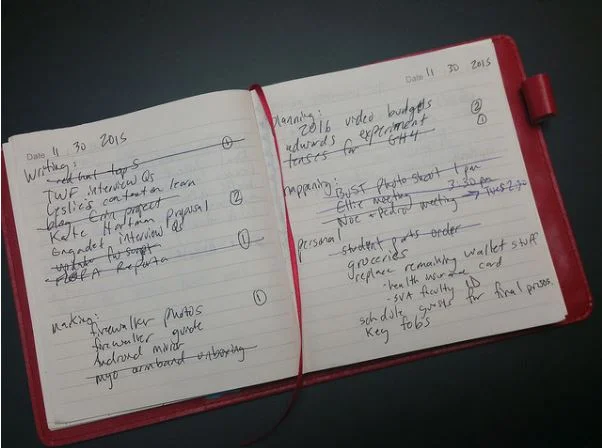 Date 11 30 2015
Writing:
red hat top 5 ①
TWF interview Qs
Leslie's contract on learn
blog Erin project
Kate Hartman proposal ②
Engadget interview Qs
update fw script ①
FLORA Reporta
making:
firewalker photos ①
firewalker guide
android mirror
myo armband unboxing
Date 11 30 2015
planning:
2016 video budgets ②
edwards experiment ①
lenses for GH4
mapping:
BUST photo shoot 1 pm
Ellie meeting 3:30 pm
Noe + Pedro meeting → Tues 2:30
personal
student parts order
groceries
replace remaining wallet stuff
- health insurance card
- SVA faculty ID
schedule guests for final presos.
key fobs